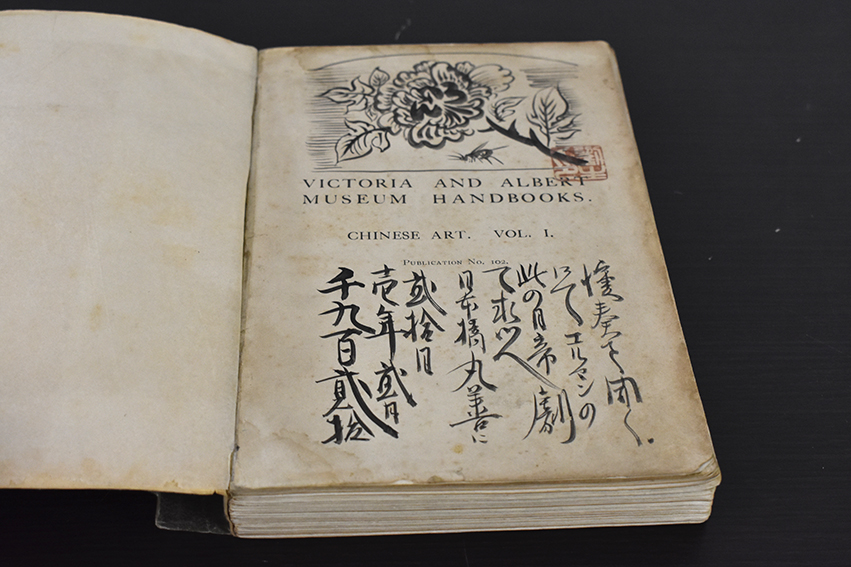 VICTORIA AND ALBERT
MUSEUM HANDBOOKS.
CHINESE ART. VOL. I.
PUBLICATION No. 102.
千九百貳拾
壱年弐月
弐拾日
日本橋丸善に
て求
此の日帝劇
にてエルマンの
演奏を聞く。